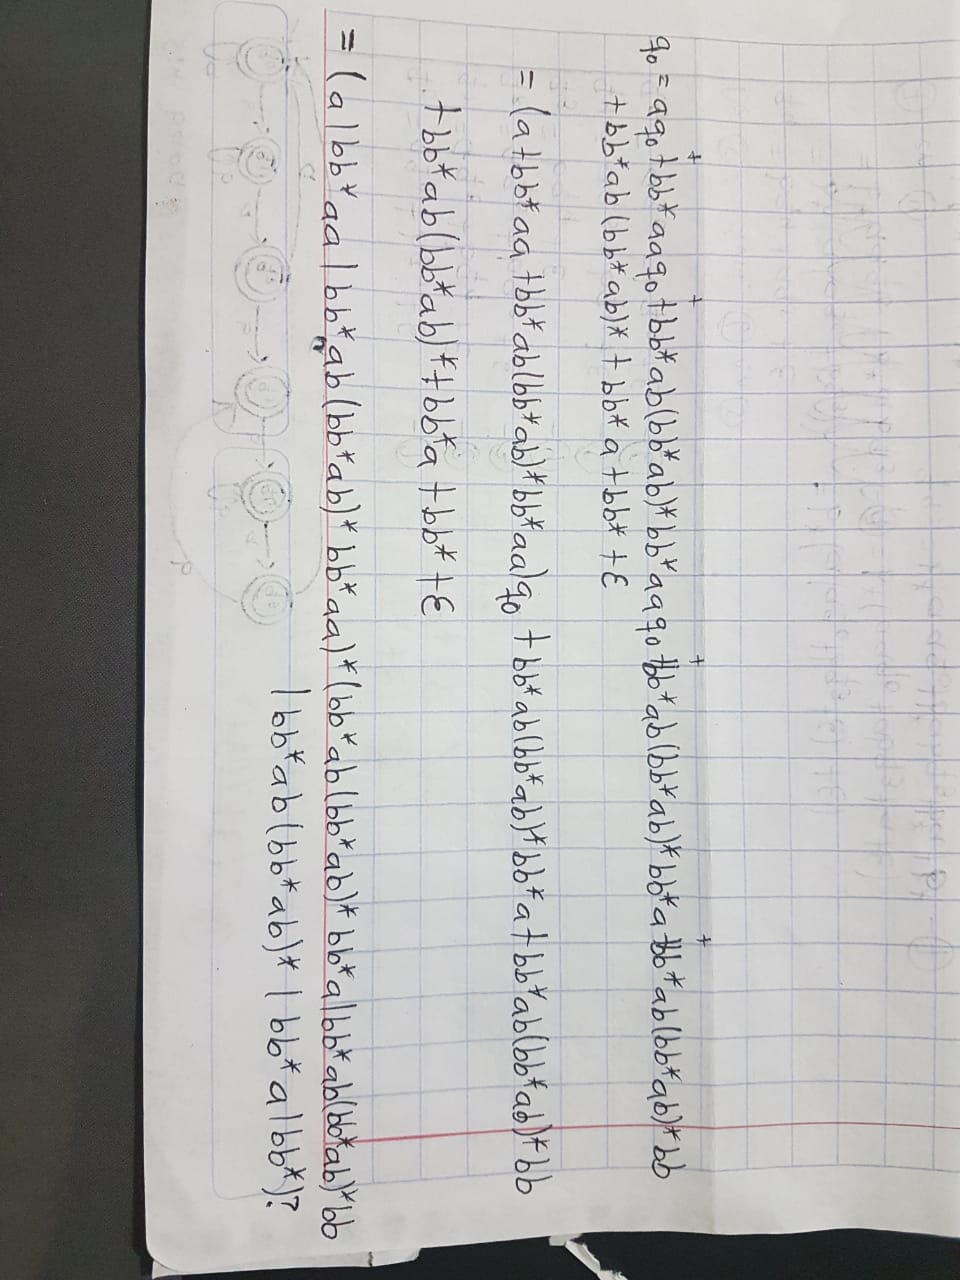 q₀ = aq₀ + bb*aaq₀ + bb*ab(bb*ab)*bb*aaq₀ + bb*ab(bb*ab)*bb*a + bb*ab(bb*ab)*bb
+ bb*ab(bb*ab)* + bb*a + bb* + ε
= (a + bb*aa + bb*ab(bb*ab)*bb*aa)q₀ + bb*ab(bb*ab)*bb*a + bb*ab(bb*ab)*bb
+ bb*ab(bb*ab)* + bb*a + bb* + ε
= (a|bb*aa|bb*ab(bb*ab)*bb*aa)*(bb*ab(bb*ab)*bb*a|bb*ab(bb*ab)*bb
|bb*ab(bb*ab)*|bb*a|bb*)?